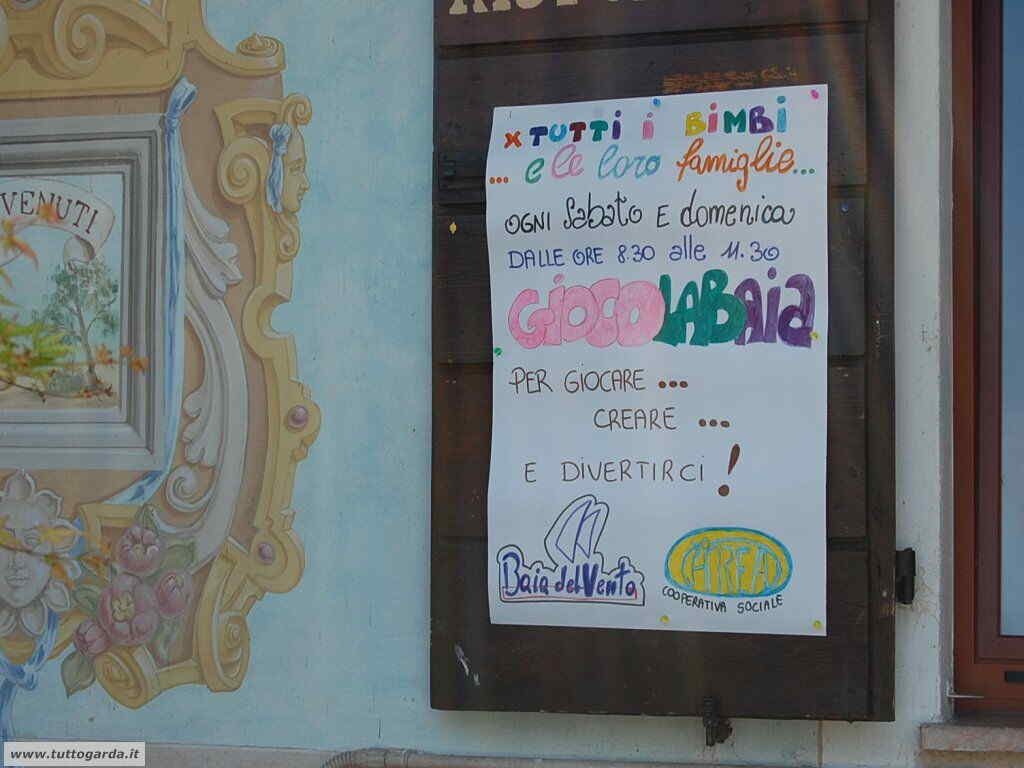 VENUTI
x TUTTI i BiMBi
... e le loro famiglie...
OGNI Sabato E domenica
DALLE ORE 8.30 alle 11.30
GIOCOLABAIA
PER GIOCARE ...
CREARE ...
E DIVERTIRCI !
Baia del Vento
COOPERATIVA SOCIALE
www.tuttogarda.it